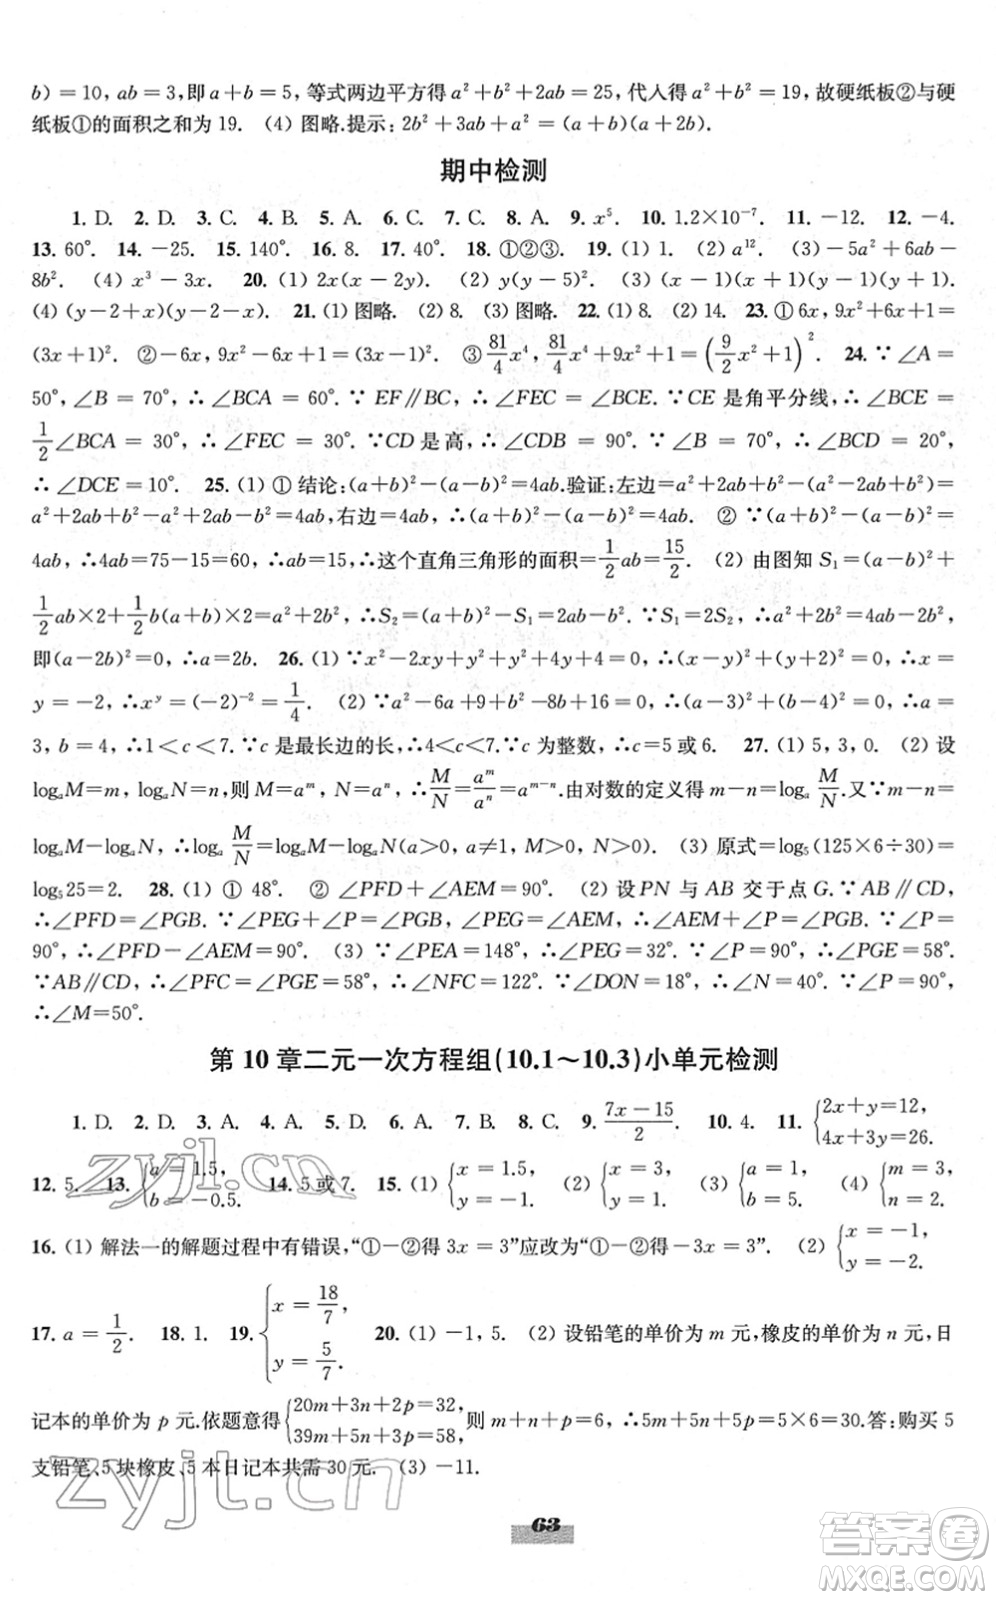 b)=10, ab=3,即a+b=5, 等式两边平方得 a²+b²+2ab=25, 代人得 a²+b²=19, 故硬纸板②与硬
纸板①的面积之和为 19. (4) 图略.提示: 2b²+3ab+a²=(a+b)(a+2b).
期中检测
1. D. 2. D. 3. C. 4. B. 5. A. 6. C. 7. C. 8. A. 9. x⁵. 10. 1.2×10⁻⁷. 11. −12. 12. −4.
13. 60°. 14. −25. 15. 140°. 16. 8. 17. 40°. 18. ①②③. 19. (1) 1. (2) a¹². (3) −5a²+6ab−
8b². (4) x³−3x. 20. (1) 2x(x−2y). (2) y(y−5)². (3) (x−1)(x+1)(y−1)(y+1).
(4) (y−2+x)(y−2−x). 21. (1) 图略. (2) 8. (3) 图略. 22. (1) 8. (2) 14. 23. ① 6x, 9x²+6x+1=
(3x+1)². ②−6x, 9x²−6x+1=(3x−1)². ③ 81/4 x⁴, 81/4 x⁴+9x²+1=(9/2 x²+1)². 24. ∵∠A=
50°,∠B=70°,∴∠BCA=60°.∵EF∥BC,∴∠FEC=∠BCE.∵CE 是角平分线,∴∠BCE=
1/2∠BCA=30°,∴∠FEC=30°.∵CD 是高,∴∠CDB=90°.∵∠B=70°,∴∠BCD=20°,
∴∠DCE=10°. 25. (1) ① 结论:(a+b)²−(a−b)²=4ab.验证:左边=a²+2ab+b²−(a²−2ab+b²)=
a²+2ab+b²−a²+2ab−b²=4ab,右边=4ab,∴(a+b)²−(a−b)²=4ab. ② ∵(a+b)²−(a−b)²=
4ab,∴4ab=75−15=60,∴ab=15,∴这个直角三角形的面积=1/2 ab=15/2. (2) 由图知 S₁=(a−b)²+
1/2 ab×2+1/2 b(a+b)×2=a²+2b²,∴S₂=(a+b)²−S₁=2ab−b².∵S₁=2S₂,∴a²+2b²=4ab−2b²,
即(a−2b)²=0,∴a=2b. 26. (1) ∵x²−2xy+y²+y²+4y+4=0,∴(x−y)²+(y+2)²=0,∴x=
y=−2,∴xʸ=(−2)⁻²=1/4. (2) ∵a²−6a+9+b²−8b+16=0,∴(a−3)²+(b−4)²=0,∴a=
3, b=4,∴1<c<7.∵c 是最长边的长,∴4<c<7.∵c 为整数,∴c=5 或 6. 27. (1) 5, 3, 0. (2) 设
logₐM=m, logₐN=n,则 M=aᵐ, N=aⁿ,∴M/N=aᵐ/aⁿ=aᵐ⁻ⁿ.由对数的定义得 m−n=logₐ M/N.又∵m−n=
logₐM−logₐN,∴logₐ M/N=logₐM−logₐN(a>0, a≠1, M>0, N>0). (3) 原式=log₅(125×6÷30)=
log₅25=2. 28. (1) ① 48°. ② ∠PFD+∠AEM=90°. (2) 设 PN 与 AB 交于点 G.∵AB∥CD,
∴∠PFD=∠PGB.∵∠PEG+∠P=∠PGB,∠PEG=∠AEM,∴∠AEM+∠P=∠PGB.∵∠P=
90°,∴∠PFD−∠AEM=90°. (3) ∵∠PEA=148°,∴∠PEG=32°.∵∠P=90°,∴∠PGE=58°.
∵AB∥CD,∴∠PFC=∠PGE=58°,∴∠NFC=122°.∵∠DON=18°,∴∠N=40°.∵∠P=90°,
∴∠M=50°.
第 10 章二元一次方程组(10.1～10.3)小单元检测
1. D. 2. D. 3. C. 4. A. 5. D. 6. A. 7. B. 8. C. 9. (7x−15)/2. 10. 4. 11. {2x+y=12, 4x+3y=26.
12. 5. 13. {a=1.5, b=−0.5. 14. 5 或 7. 15. (1) {x=1.5, y=−1. (2) {x=3, y=5. (3) {a=1, b=5. (4) {m=3, n=2.
16. (1) 解法一的解题过程中有错误,“①−②得 3x=3”应改为“①−②得−3x=3”. (2) {x=−1, y=−2.
17. a=1/2. 18. 1. 19. {x=18/7, y=5/7. 20. (1) −1, 5. (2) 设铅笔的单价为 m 元,橡皮的单价为 n 元,日
记本的单价为 p 元.依题意得{20m+3n+2p=32, 39m+5n+3p=58,则 m+n+p=6,∴5m+5n+5p=5×6=30.答:购买 5
支铅笔、5 块橡皮、5 本日记本共需 30 元. (3) −11.
63
zyjl.cn
zyjl.cn
答案圈
MXQE.COM